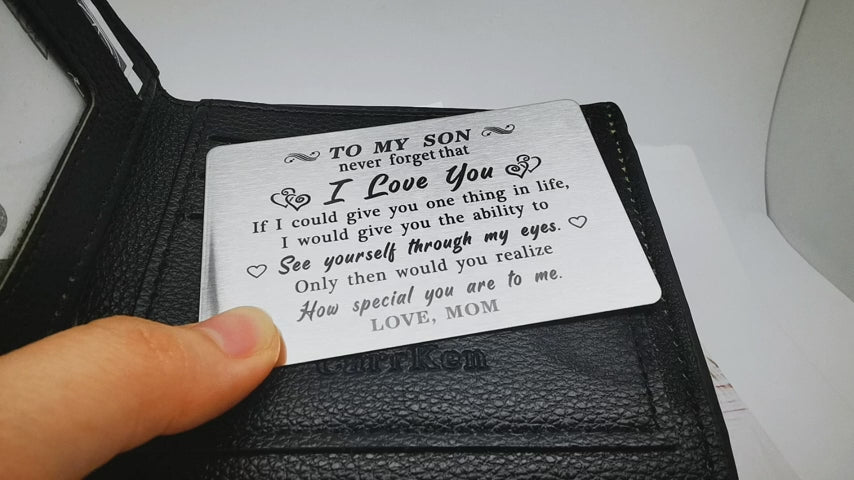 TO MY SON
never forget that
I Love You
If I could give you one thing in life,
I would give you the ability to
See yourself through my eyes.
Only then would you realize
How special you are to me.
LOVE, MOM
CarrKen